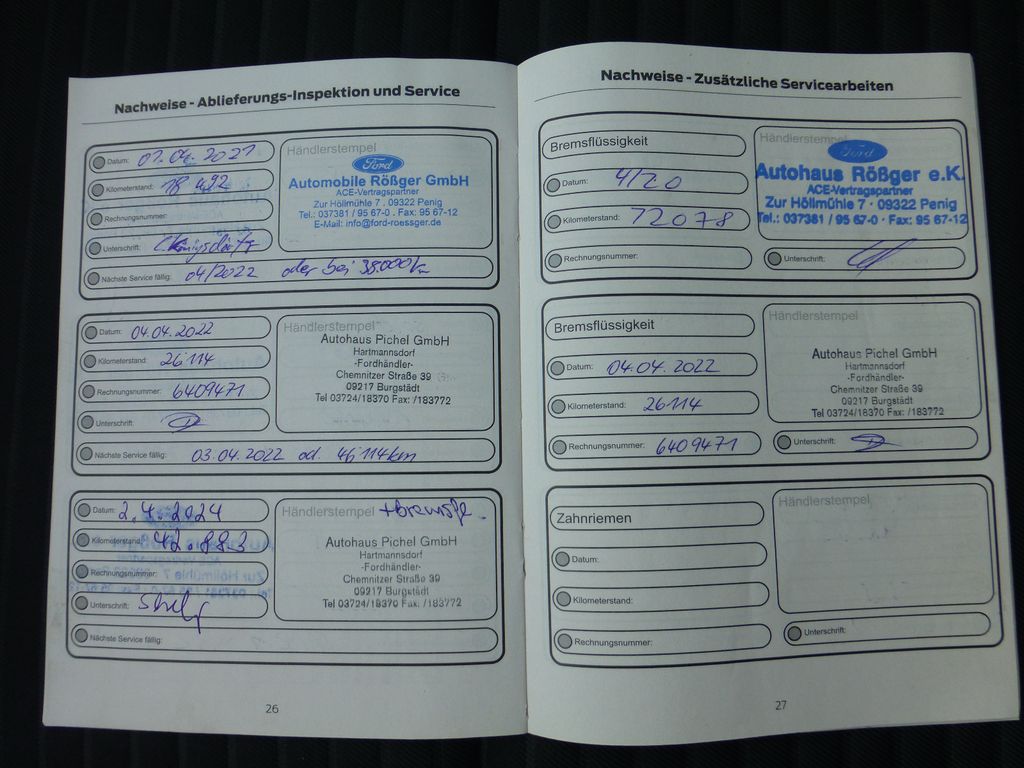 Nachweise - Ablieferungs-Inspektion und Service
Datum: 01.04.2021
Kilometerstand: 18 492
Rechnungsnummer:
Unterschrift:
Nächste Service fällig: 04/2022 oder bei 38.000 km
Händlerstempel
Ford
Automobile Rößger GmbH
ACE-Vertragspartner
Zur Höllmühle 7 · 09322 Penig
Tel.: 037381 / 95 67-0 · Fax: 95 67-12
E-Mail: info@ford-roessger.de
Datum: 04.04.2022
Kilometerstand: 26 114
Rechnungsnummer: 6409471
Unterschrift:
Nächste Service fällig: 03.04.2022 od. 46 114 km
Händlerstempel
Autohaus Pichel GmbH
Hartmannsdorf
-Fordhändler-
Chemnitzer Straße 39
09217 Burgstädt
Tel 03724/18370 Fax: /183772
Datum: 2.4.2024
Kilometerstand: 42.883
Rechnungsnummer:
Unterschrift:
Nächste Service fällig:
Händlerstempel
Autohaus Pichel GmbH
Hartmannsdorf
-Fordhändler-
Chemnitzer Straße 39
09217 Burgstädt
Tel 03724/18370 Fax: /183772
26
Nachweise - Zusätzliche Servicearbeiten
Bremsflüssigkeit
Datum: 4/20
Kilometerstand: 12078
Rechnungsnummer:
Händlerstempel
Ford
Autohaus Rößger e.K.
ACE-Vertragspartner
Zur Höllmühle 7 · 09322 Penig
Tel.: 037381 / 95 67-0 · Fax: 95 67-12
Unterschrift:
Bremsflüssigkeit
Datum: 04.04.2022
Kilometerstand: 26114
Rechnungsnummer: 6409471
Händlerstempel
Autohaus Pichel GmbH
Hartmannsdorf
-Fordhändler-
Chemnitzer Straße 39
09217 Burgstädt
Tel 03724/18370 Fax: /183772
Unterschrift:
Zahnriemen
Datum:
Kilometerstand:
Rechnungsnummer:
Händlerstempel
Unterschrift:
27